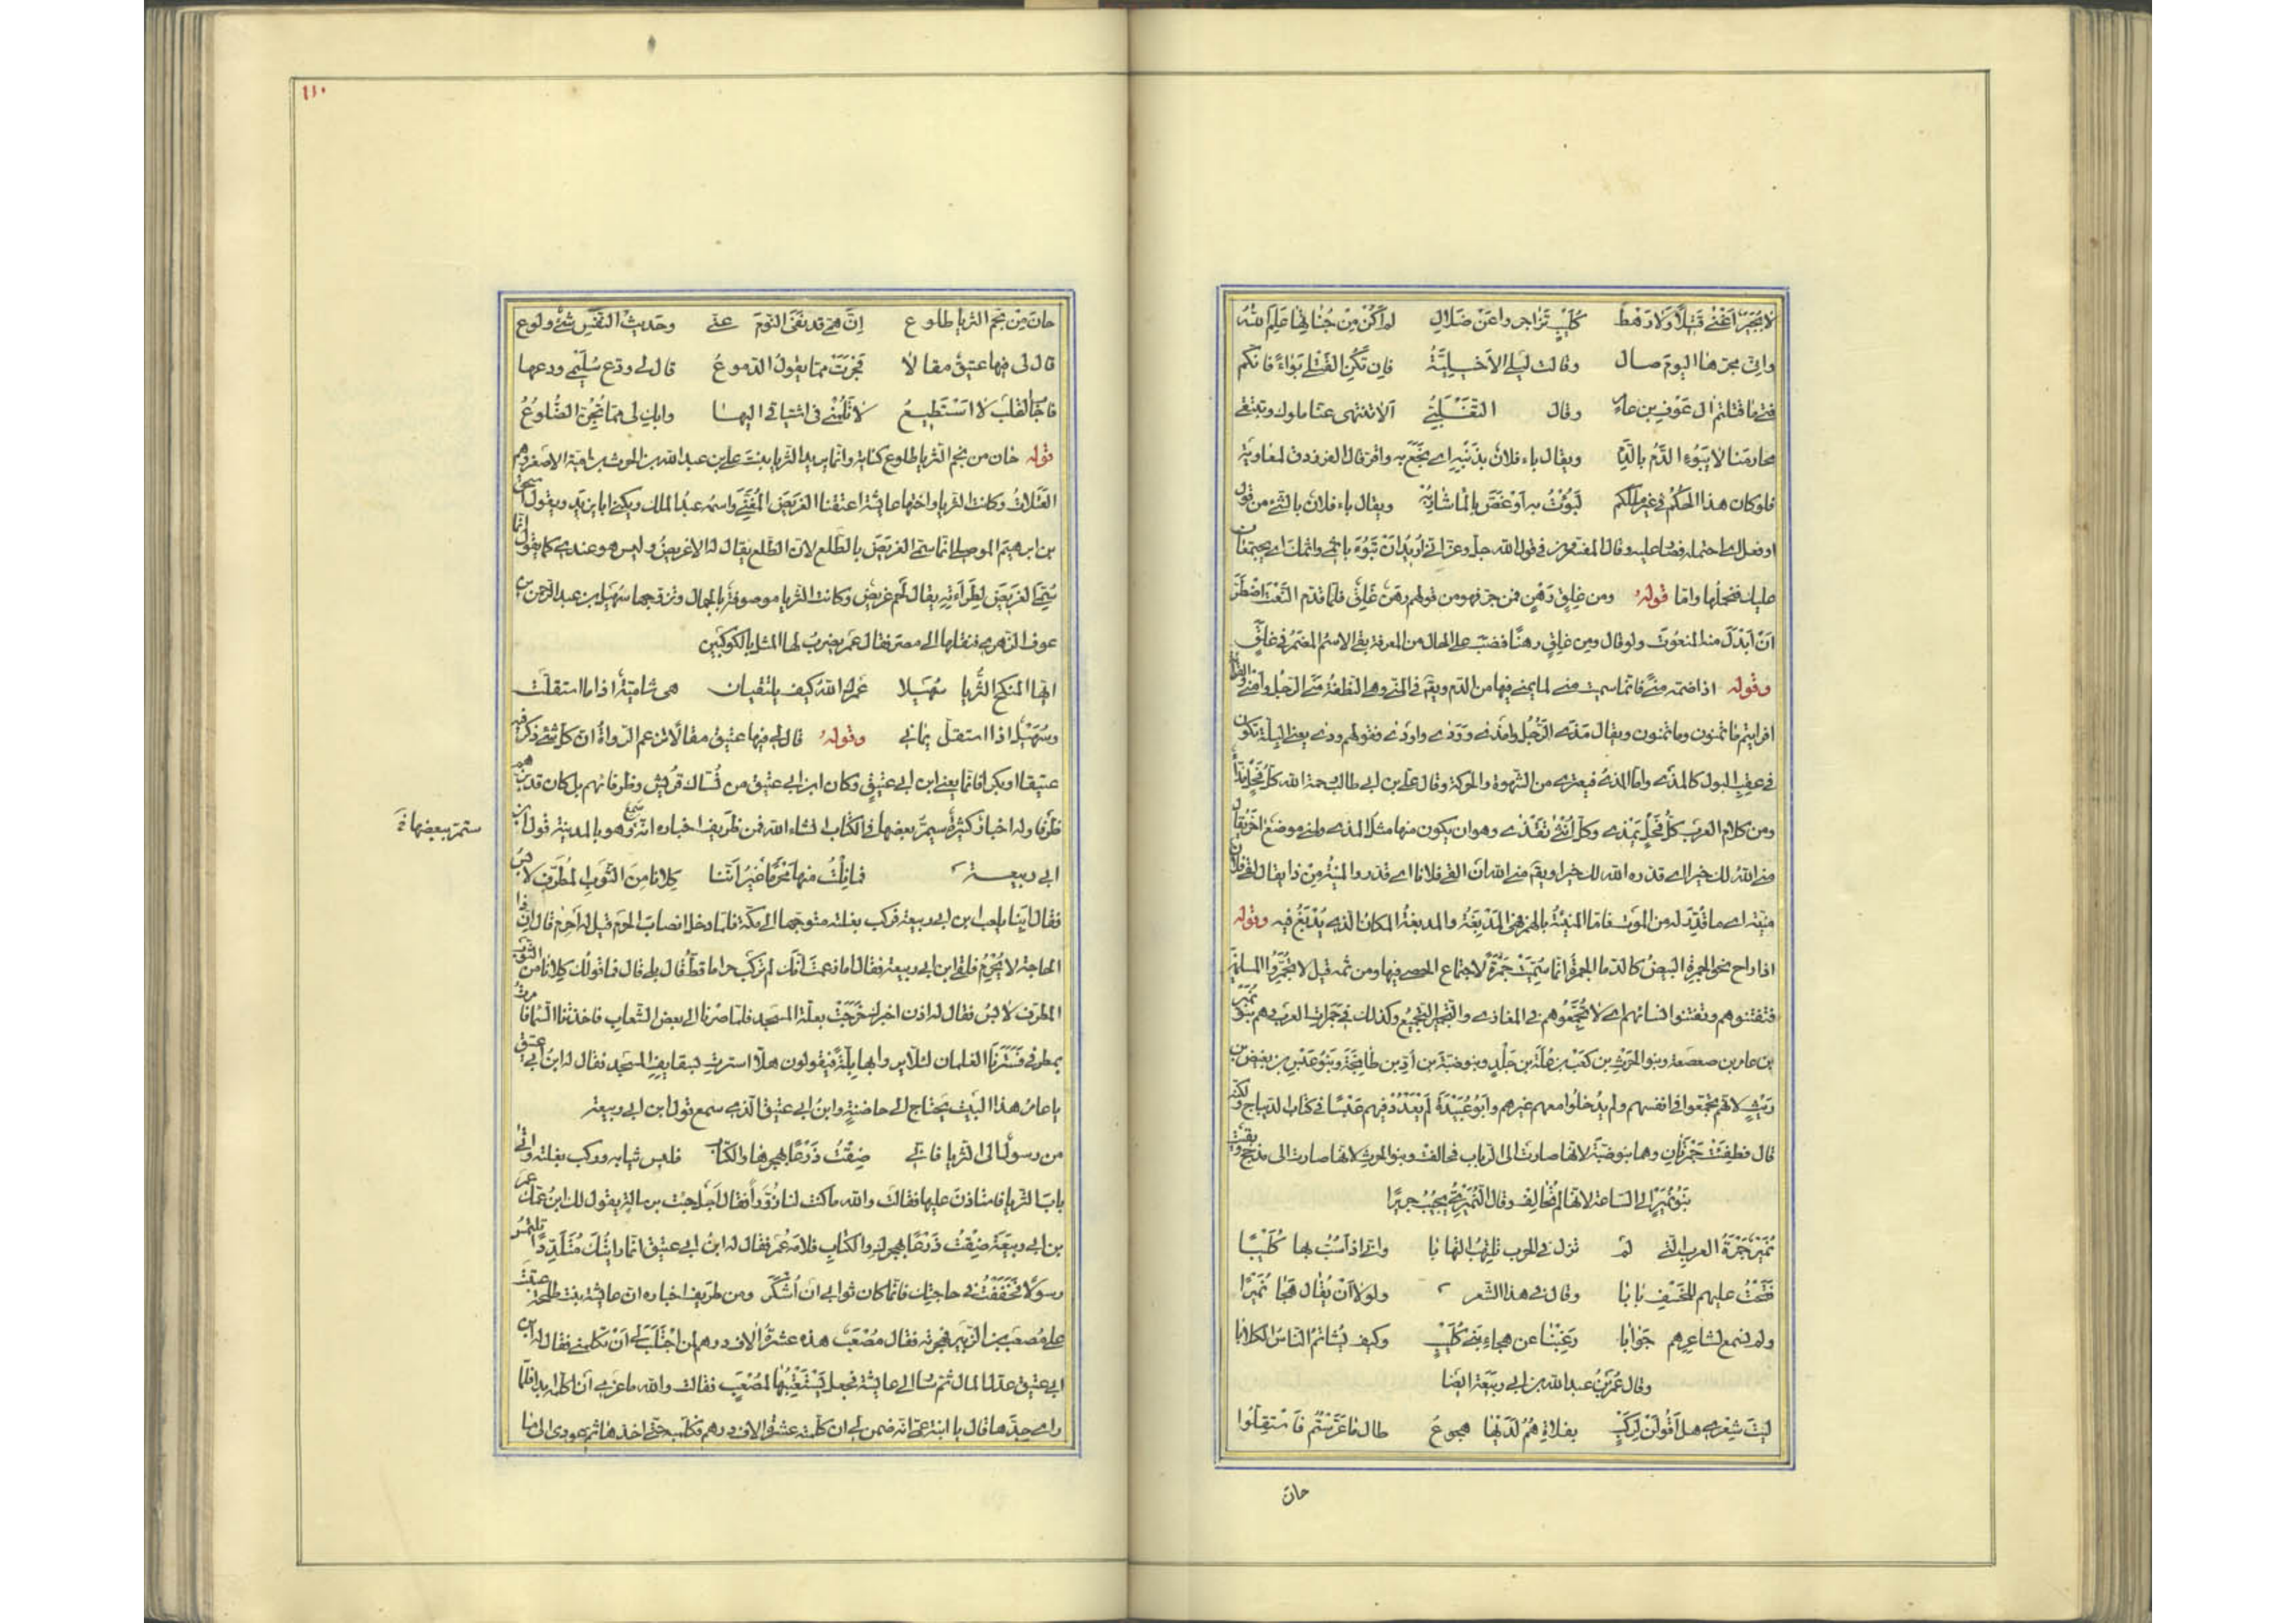 لا بُجَيْرٌ اَغْنى قَتيلًا وَلا رَهْطُ كُلَيْبٍ تَزاجَروا عَنْ ضَلالِ لم اَكُنْ مِنْ جُناتِها عَلِمَ اللهُ
وانى بحرّها اليومَ صال وقالت ليلى الاَخيليَّةُ فاِن تَكُنِ القَتْلى بَوَاءً فانكم
فتى ما قتلتم ال عَوْفِ بن عامِ وقال التغلبىُّ اَلا تنتهى عنّا ملوك وتتقى
محارمَنا لا يَبُوءِ الدَّمُ بالدَّمِ ويقال باء فلانٌ بذنبِهِ اى بَخَعَ به واقرّ قال الفرزدق لمعاوية
فلو كان هذا الحُكمُ فى غير ملككم لَبُؤتُ به اَو غَصَّ بالماء شاربُهْ ويقال باء فلانٌ بالشىء من قول
او فعل اى احتمله فصار عليه وقال المفسّرون فى قول الله جلّ وعزّ انى اُريدُ اَنْ تَبُوءَ باِثمى واثمك اى يجتمعان
عليك فتحملها وامّا قولُهُ ومن غَلِقٍ رَهْنٍ فمن جرّ فهو من قولهم رهنٌ غَلِقٌ فلما قدّم النَّعْتَ اضْطُرَّ
اَنْ اَبْدَلَ منه المنعُوتَ ولو قال ومن غلِقٍ رهنًا فنصبَ على الحال من المعرفة بقى الاسمُ المضمَرُ فى غلِقٍ
وقوله اذا ضمّه مِنًى فانّما سميت منى لما يمنى فيها من الدّم ويقَ فى المنىّ وهى النطفةُ مَنَى الرّجُل واَمْنى والقراءةُ
افرايتم ما تَمنون وما تُمنون ويقال مَذى الرَّجُلُ وامذى ووَدَى واودَى وقولهم وَدى يعنى البِلّة تكون
فى عقِبِ البول كالمذى وامّا المذىُ فيعترى من الشهوة والحركة وقال علىّ بن ابى طالب رحمه الله كلّ فحلٍ مذّاءٌ
ومن كلام العرب كلّ فحلٍ يَمذى وكلّ اُنثى تقذى وهو ان يكون منها مثلُ المذى ولمنى موضعٌ آخر يقال
منى اللهُ لك خيرا اى قدّره الله لك خيرا ويقَ منى الله ان القى فلانًا اى قدّر والمنيّةُ من ذا يقال لقى فلان
منيّته اى ما قُدِّرَ له من الموتِ فامّا المَنِيئَةُ بالهمز فهى المَدْبغَةُ والمدبغةُ المكانُ الّذى يُدْبَغُ فيه وقوله
اذا راح نحو الجمرةِ البيضُ كالدّمى الجمرةُ انّما سُمِّيَتْ جَمْرةً لاجتماع الحصى فيها ومن ثمه قيل لا تُجَمِّرُوا المسلمينَ
فتفتنوهم وتفتنوا نساءهم اى لا تُجَمِّعُوهم فى المغازى والتّجميرُ التّجميعُ وكذلك فى جمراتِ العرب وهم بنو نُمَيْر
بن عامر بن صعصعة وبنو الحرث بن كعْبِ بن عُلةَ بن جَلدٍ وبنو ضبّة بن اُدّ بن طابِخَةَ وبَنُو عَبْسِ بن بغيض بن
رَيْثٍ لانّهم تجمّعوا فى انفسهم ولم يُدخلوا معهم غيرهم واَبُو عُبَيْدَةَ لَمْ يَعْدُدْ فيهم عَبْسًا فى كتاب الدّيباج ولكنّه
قال فطفِئَتْ جَمْرتانِ وهما بنو ضبّة لانّها صارت الى الرّباب فحالفت وبنو الحرث لانّها صارت الى مذحج وبقيت
بَنُو نُمَيْرٍ الى السّاعة لانّها لم تُحالِف وقال النُّمَيْرِىُّ يُجيبُ جريرًا
نُمَيْرُ جَمْرَةُ العرب الّتى لَمْ تزل فى الحرب تلتهبُ التهابا وانّى اذ اَسُبُّ بها كُلَيْبًا
فَتَحْتُ عليهم للخَسْفِ بابا وقال فى هذا الشّعر ولولا اَنْ يُقال هَجا نُمَيْرًا
ولم نسمع لشاعِرِهم جَوابا رَغِبْنا عن هجاءِ بَنى كُلَيْبٍ وكيف يُشاتِمُ النّاسُ الكلابا
وقال عُمَرُ بنُ عبدالله بن ابى ربيعة ايضًا
لَيْتَ شِعْرى هل اَقُولَنْ لرَكْبٍ بفلاةٍ هُمْ لَدَيْها هجوعُ طال ما عَرَّسْتُم فَاستَقِلّوا
حان
١١٠
حانَ مِنْ نجمِ الثريا طلوع اِنَّ همّى قد نَفَى النّومَ عنّى وحَديثُ النّفْسِ شىْءٌ ولوع
قال لى فيها عتيقٌ مقالا فَجَرَتْ ممّا يقولُ الدّموعُ قال لى ودّع سُلَيْمى ودعها
فاَجابَ القلبُ لا اَسْتَطيعُ لا تَلُمْنى فى اشتياقى اليها وابكِ لى ممّا تُجِنُّ الضُّلوعُ
قولُه حان من نجم الثريا طلوع كناية وانّما يريد الثريا بنتَ على بن عبدالله بن الحرث بن اميّة الاصغر وهم
العَبَلاتُ وكانت الثريا واختها عائشة اعتقتا الغريضَ المُغَنّى واسمه عبدُ الملك ويكنى ابا يزيد ويقول اسحق
بن ابرهيم الموصلى انّما سمّى الغريضَ بالطّلع لانّ الطّلع يقال له الاغريضُ وليس هو عندى كما يقول انّما
سُمّى الغريضَ لِطَراءتِهِ يقال لحمٌ غريضٌ وكانت الثريا موصوفةً بالجمال وتزوّجها سُهَيلُ بن عبد الرّحمن بن
عوف الزّهرى فنقلها الى مصر فقال عُمَر يضربُ لهما المثل بالكوكبَين
ايّها المنكِحُ الثُّريّا سُهَيْلا عَمْرَكَ اللهَ كيف يلتقيان هى شاميّةٌ اذا ما استقلّت
وسُهَيْلٌ اذا استقلّ يمانى وقولُه قال لى فيها عتيقٌ مقالًا تزعم الرّواةُ انّ كلّ شىء ذكر فيه
عتيقا او بكرا فانّما يعنى ابن ابى عتيقٍ وكان ابن ابى عتيق من نُسّاك قريش وظرفائهم بل كان قد بذّهم
ظرفًا وله اخبارٌ كثيرةٌ سيمرّ بعضها فى الكتاب انشاء الله فمن ظريف اخباره انّه سمِعَ وهو بالمدينة قول ابن
ستمرّ ببعضها خَ
ابى ربيعة فما نِلْتُ منها مَحْرَمًا غَيْرَ اَنّنا كِلانا مِنَ الثّوبِ المُطَرّفِ لابسُ
فقال اَبِنا يلعب ابن ابى ربيعة فركب بغلته متوجّها الى مكّة فلمّا دخل انصابَ الحرم قيل له اَحرِمْ قال انّ ذا
الحاجة لا يُحْرِمُ فلقى ابن ابى ربيعة فقال اما زعمتَ انّك لم تركَبْ حراما قطّ قال بلى قال فما قولُك كِلانا من الثّوبِ
المطرّف لابسُ فقال له اذن اخبرك خَرَجَتْ بعلّة المسجد فلمّا صرنا الى بعض الشّعاب فاخذتنا السّماء فامرتُ
بمطرفى فسَتَرَنا الغلمان لئلّا يروا بها بِلّةً فيقولون هلّا استترتِ بسقايفِ المسجد فقال له ابنُ ابى عتيق
يا عاهرُ هذا البَيتُ يحتاج الى حاضنةٍ وابنُ ابى عتيق الّذى سمع قول ابن ابى ربيعة
من رسولى الى الثريا فانّى ضِقْتُ ذَرْعًا بهجرها والكتاب فلبس ثيابه وركب بغلته واتى
بابَ الثريا فاستاذنَ عليها فقالت والله ما كنت لنا زُوَّارًا فقال اَجَل جئت برسالةٍ يقول لك ابنُ عمّك عمر
بن ابى ربيعة ضِقْتُ ذَرْعًا بهجرك والكتاب فلامه عُمَر فقال له ابنُ ابى عتيق انّما رايتُك مُتَلَدِّدًا تلتمسُ
رسولًا فَخَفَفْتُ فى حاجتك فانّما كان ثوابى ان اُشكَر ومن ظريف اخباره انّ عايشة بنت طلحة عتبت
على مُصعَب بن الزّبير فهجرته فقال مُصْعَبٌ هذه عشرةُ الاف درهم لمن احْتَالَ لى اَنْ تكلّمنى فقال له ابن
ابى عتيق عدّ لى المال ثمّ صار الى عايشة فجعل يَسْتَعْتِبُها لمُصْعَبٍ فقالت والله ما عزمى اَن اكلّمه ابدا فلمّا
راى جِدّها قال يا ابنة عمّ انّه ضمن لى ان كلّمتِه عشرةَ الاف درهم فكلّميه حتّى اخذها ثمّ عودى الى ما